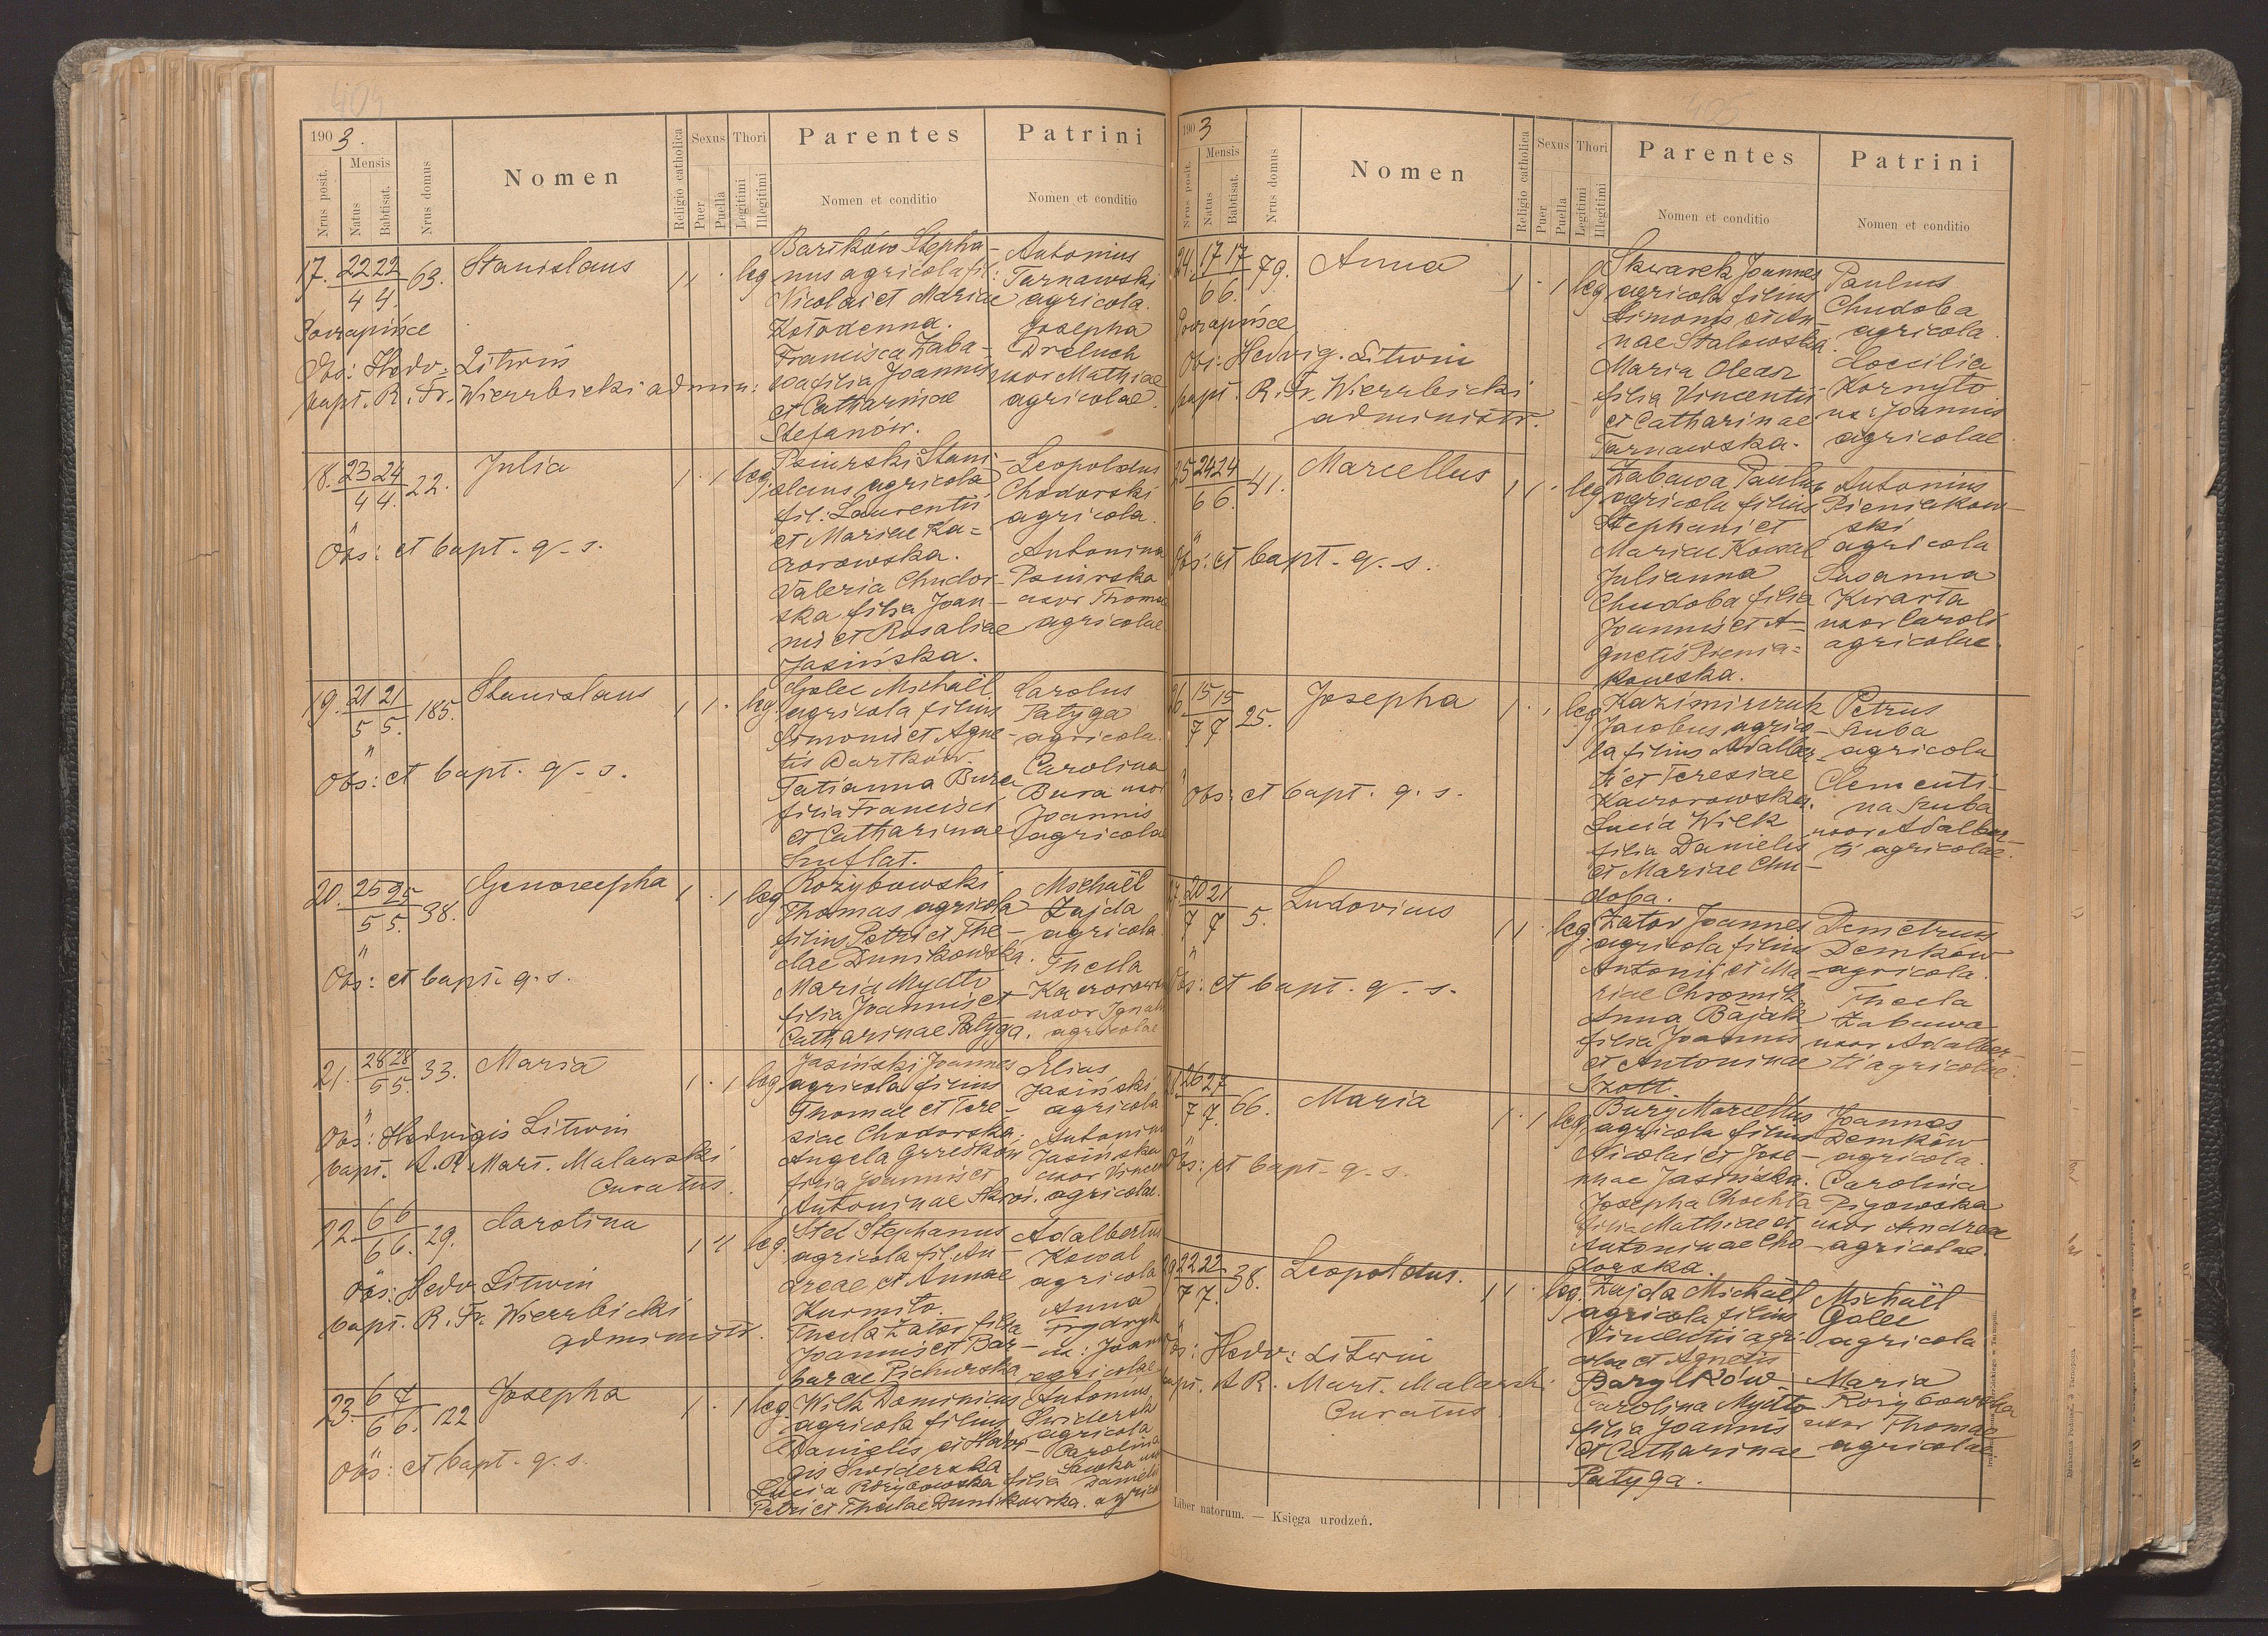 404
1903.
Nrus posit.
Mensis
Natus
Babtisat.
Nrus domus
Nomen
Religio catholica
Sexus
Puer
Puella
Thori
Legitimi
Illegitimi
Parentes
Nomen et conditio
Patrini
Nomen et conditio
17. 22/4 22/4. 63. Stanislaus 1 1 · leg
Korrapińce
Obs: Hedv: Litwin
bapt. R. Fr. Wierzbicki admin:
Barików Stepha-
nus agricola fil:
Nicolai et Mariae
Kołodenna.
Francisca Zaba-
wa filia Joannis
et Catharinae
Stefanów.
Antonius
Tarnawski
agricola.
Josepha
Dreluch
uxor Mathiae
agricolae.
18. 23/4 24/4. 22. Julia 1 · 1 leg
"
Obs: et bapt. q. s.
Psiurski Stani-
slaus agricola
fil: Laurentii
et Mariae Ka=
czorowska.
Valeria Chudor-
ska filia Joan-
nis et Rosaliae
Jasińska.
Leopoldus
Chodorski
agricola.
Antonina
Psiurska
uxor Thomae
agricolae
19. 21/5 21/5. 185. Stanislaus 1 1 · leg
"
Obs: et bapt. q. s.
Golec Michaël
agricola filius
Simonis et Agne-
tis Bartków.
Tatianna Bura
filia Francisci
et Catharinae
Szuflat.
Carolus
Patyga
agricola.
Carolina
Bura uxor
Joannis
agricolae
20. 25/5 25/5. 38. Genovepha 1 · 1 leg
"
Obs: et bapt. q. s.
Rożybowski
Thomas agricola
filius Petri et The-
clae Dunikowska.
Maria Mydło
filia Joannis et
Catharinae Patyga.
Michaël
Zajda
agricola.
Thecla
Kaczorows
uxor Ignatii
agricolae
21. 28/5 28/5. 33. Maria 1 · 1 leg
"
Obs: Hedvigis Litwin
bapt. A. R. Mart. Malawski
Curatus.
Jasiński Joannes
agricola filius
Thomae et Tere-
siae Chodorska.
Angela Grześków
filia Joannis et
Antoninae
Elias
Jasiński
agricola
Antonina
Jasińska
uxor Vincen
agricolae.
22. 6/6 6/6. 29. Carolina 1 · 1 leg.
"
Obs: Hedv. Litwin
bapt. R. Fr. Wierzbicki
administr.
Stec Stephanus
agricola fil. An-
dreae et Annae
Kurmiło.
Thecla Zator filia
Joannis et Bar-
barae Pichurska
Adalbertus
Kowal
agricola
Anna
Frydryk
ux: Joan
agricolae
23. 6/6 7/6. 122 Josepha 1 · 1 leg
"
Obs: et bapt. q. s.
Wilk Dominicus
agricola filius
Danielis et Hedvi-
gis Świderska
Lucia Rożybowska filia
Petri et Theclae Dunikowska.
Antonius
Świdersk
agricola
Carolina
Sawka uxor
Danielis
agrico
405
1903
Nrus posit.
Mensis
Natus
Babtisat.
Nrus domus
Nomen
Religio catholica
Sexus
Puer
Puella
Thori
Legitimi
Illegitimi
Parentes
Nomen et conditio
Patrini
Nomen et conditio
24. 17/6 17/6. 79. Anna 1 · 1 leg
Korrapińce
Obs: Hedvig. Litwin
bapt. R. Fr. Wierzbicki
administr.
Skwarek Joannes
agricola filius
Simonis et An-
nae Stalowska.
Maria Oleasz
filia Vincentii
et Catharinae
Tarnawska.
Paulus
Chudoba
agricola.
Loecilia
Kornyło
ux: Joannis
agricolae.
25 24/6 24/6. 41. Marcellus 1 1 · leg
"
Obs: et bapt. q. s.
Zabawa Paulus
agricola filius
Stephani et
Mariae Kowal
Julianna
Chudoba filia
Joannis et A-
gnetis Pienia=
kowska.
Antonius
Pieniakow-
ski
agricola
Susanna
Kwarta
uxor Caroli
agricolae.
26 15/7 15/7 25. Josepha 1 · 1 leg
"
Obs: et bapt. q. s.
Kazimirczuk
Jacobus agrico-
la filius Adalber-
ti et Teresiae
Kaczorowska.
Lucia Wilk
filia Danielis
et Mariae Chu-
doba.
Petrus
Szuba
agricola
Clementi-
na Szuba
uxor Adalber-
ti agricolae.
27. 20/7 21/7 5. Ludovicus 1 1 · leg
"
Obs: et bapt. q. s.
Zator Joannes
agricola filius
Antonii et Ma-
riae Chromik
Anna Bajak
filia Joannis
et Antoninae
Szott.
Demetrius
Demków
agricola.
Thecla
Zabawa
uxor Adalber-
ti agricolae.
28 26/7 27/7. 66. Maria 1 · 1 leg
"
Obs: et bapt. q. s.
Bury Marcellus
agricola filius
Nicolai et Jose-
phae Jasińska.
Josepha Chochta
filia Mathiae et
Antoninae Cho-
dorska.
Joannes
Demków
agricola.
Carolina
Pigowska
uxor Andreae
agricolae.
29 22/7 22/7. 38. Leopoldus. 1 1 · leg.
"
Obs: Hedv: Litwin
bapt. A R. Mart. Malawski
Curatus
Zajda Michaël
agricola filius
Vincentii agri-
colae et Agnetis
Barylków
Carolina Mydło
filia Joannis
et Catharinae
Patyga.
Michaël
Golec
agricola
Maria
Rożybowska
uxor Thomae
agricolae
Liber natorum. — Księga urodzeń.